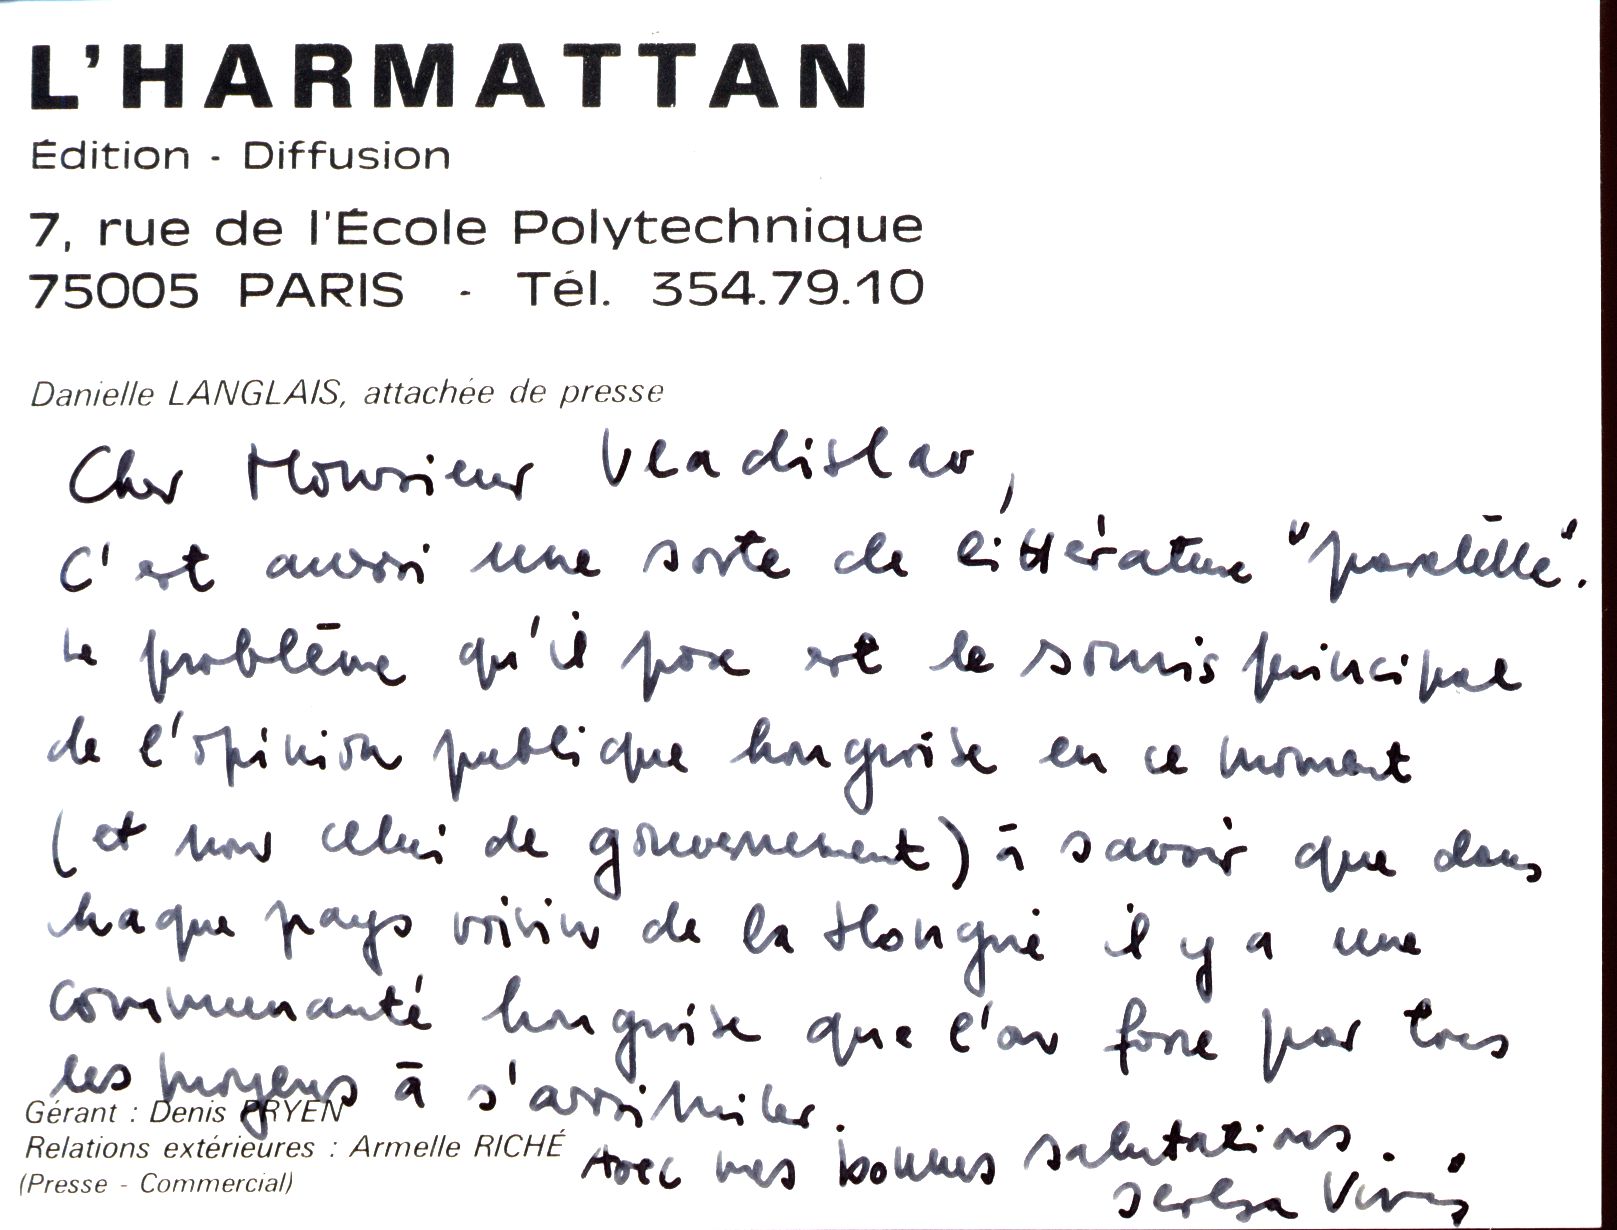 L'HARMATTAN
Édition - Diffusion
7, rue de l'École Polytechnique
75005 PARIS - Tél. 354.79.10
Danielle LANGLAIS, attachée de presse
Cher Monsieur Vladislav,
C'est aussi une sorte de littérature "paralèlle".
Le problème qu'il pose est le soucis principal
de l'opinion publique hongroise en ce moment
(et non celui de gouvernement) à savoir que dans
chaque pays voisin de la Hongrie il y a une
communauté hongroise que l'on force par tous
les moyens à s'assimiler.
Gérant : Denis PRYEN
Relations extérieures : Armelle RICHÉ
(Presse - Commercial)
Avec mes bonnes salutations